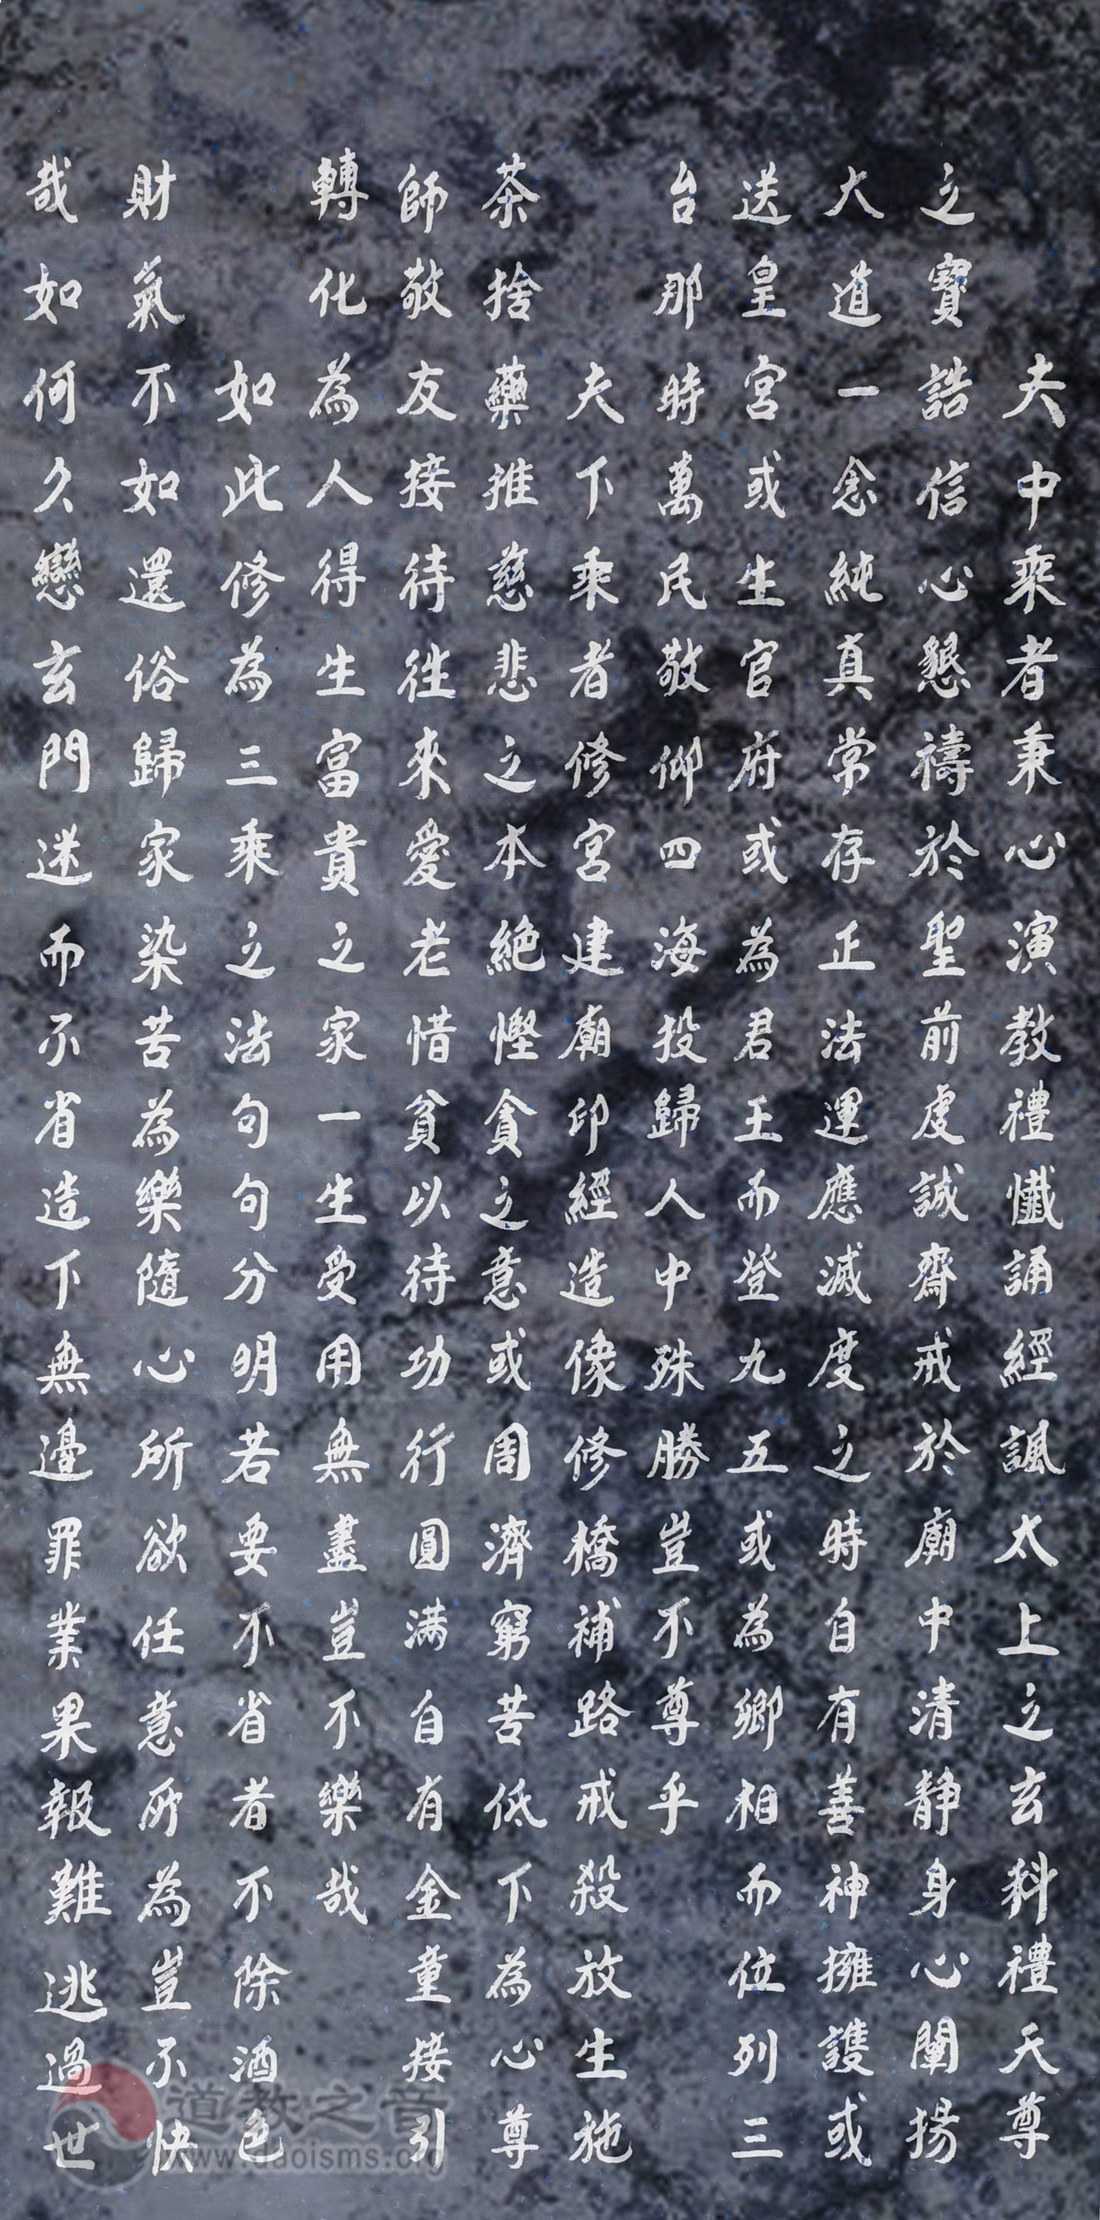 夫中乘者秉心演教禮懺誦經諷太上之玄科禮天尊
之寶誥信心懇禱於聖前虔誠齋戒於廟中清靜身心闡揚
大道一念純真常存正法運應滅度之時自有善神擁護或
送皇宮或生官府或為君王而登九五或為卿相而位列三
台那時萬民敬仰四海投歸人中殊勝豈不尊乎
夫下乘者修宮建廟印經造像修橋補路戒殺放生施
茶捨藥推慈悲之本絕慳貪之意或周濟窮苦低下為心尊
師敬友接待往來愛老惜貧以待功行圓满自有金童接引
轉化為人得生富貴之家一生受用無盡豈不樂哉
如此修為三乘之法句句分明若要不省者不除酒色
財氣不如還俗歸家染苦為樂隨心所欲任意所為豈不快
哉如何久戀玄門迷而不省造下無邊罪業果報難逃過世
道教之音
www.daoisms.org